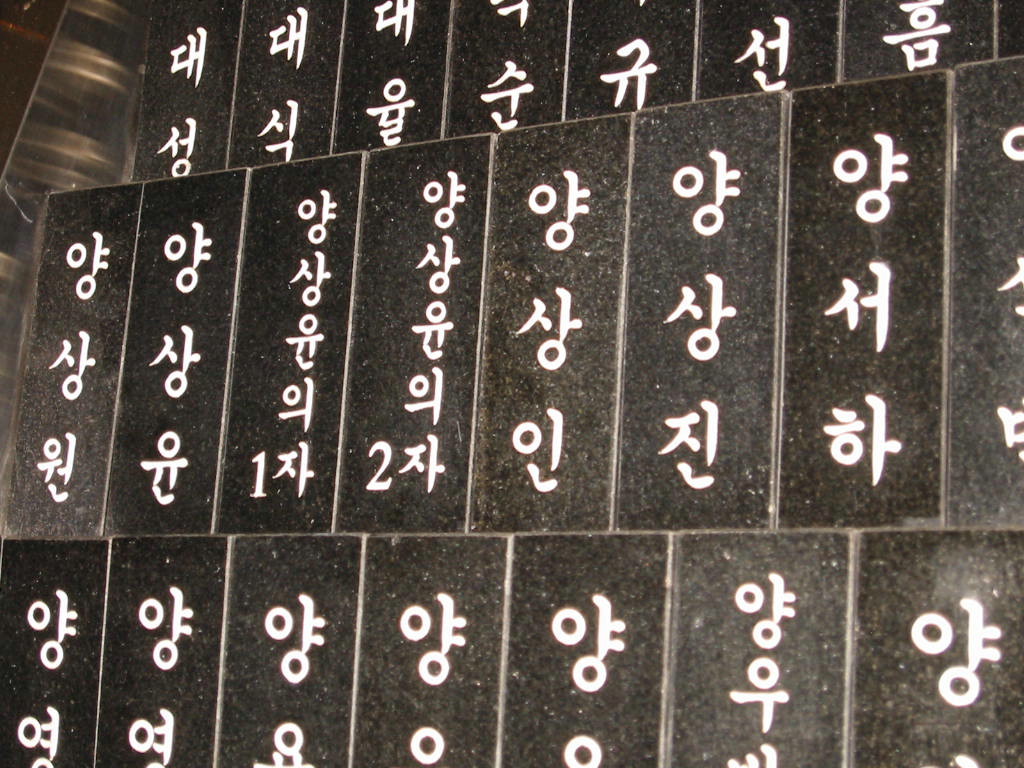 대성
대식
대율
순
규
선
흠
양상원
양상윤
양상윤의1자
양상윤의2자
양상인
양상진
양서하
양영
양영
양
양
양
양우
양